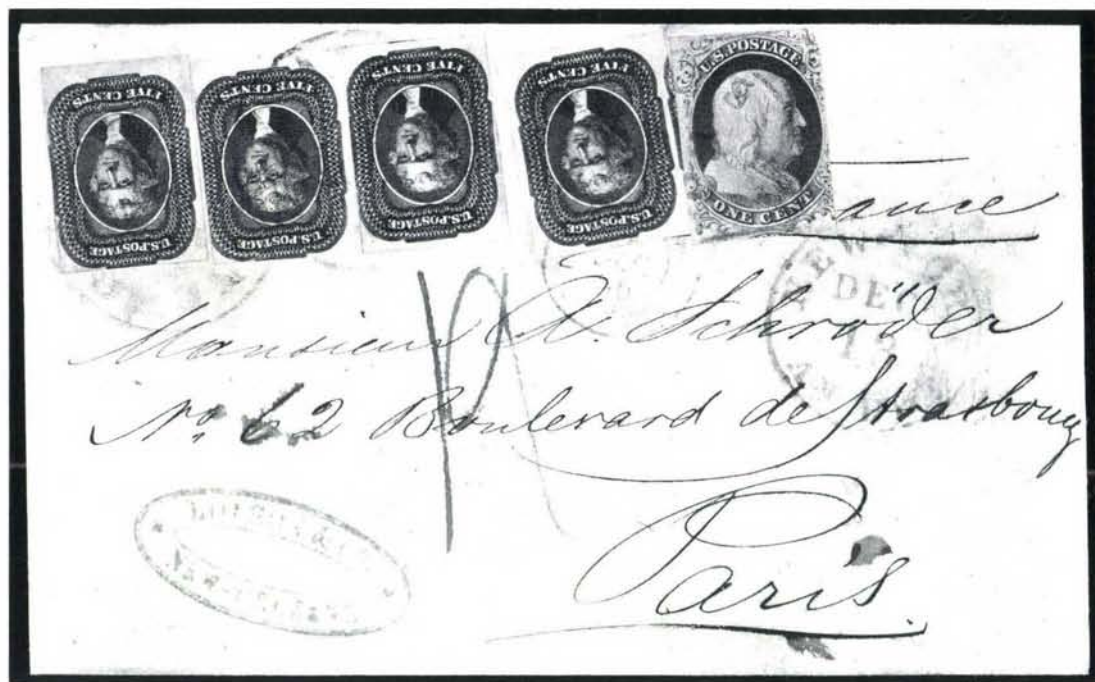 FIVE CENTS
U.S. POSTAGE
FIVE CENTS
U.S. POSTAGE
FIVE CENTS
U.S. POSTAGE
FIVE CENTS
U.S. POSTAGE
U.S. POSTAGE
ONE CENT
ance
DE
Monsieur A. Schröder
No. 62 Boulevard de Strasbourg
Paris.